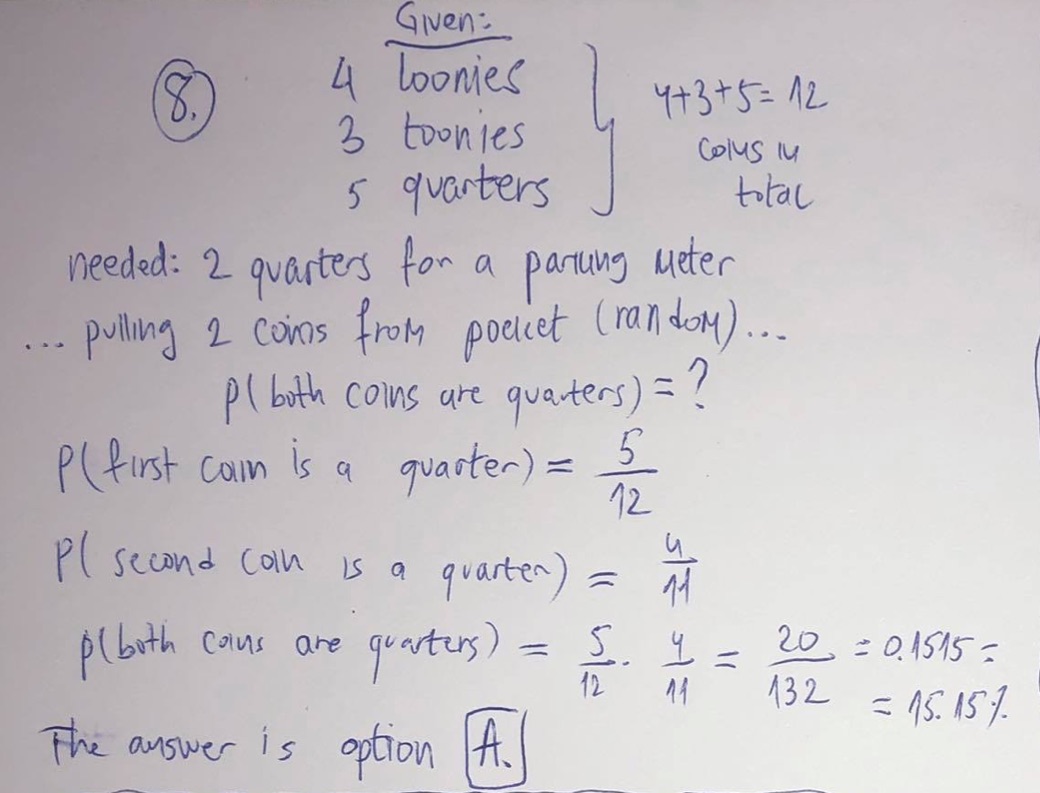 Given:
8.
4 loonies
3 toonies
5 quarters
4+3+5=12
coins in
total
needed: 2 quarters for a parking meter
... pulling 2 coins from pocket (random)...
p(both coins are quarters)=?
P(first coin is a quarter)= 5/12
P(second coin is a quarter) = 4/11
p(both coins are quarters) = 5/12 · 4/11 = 20/132 = 0.1515 =
= 15.15%
The answer is option A.